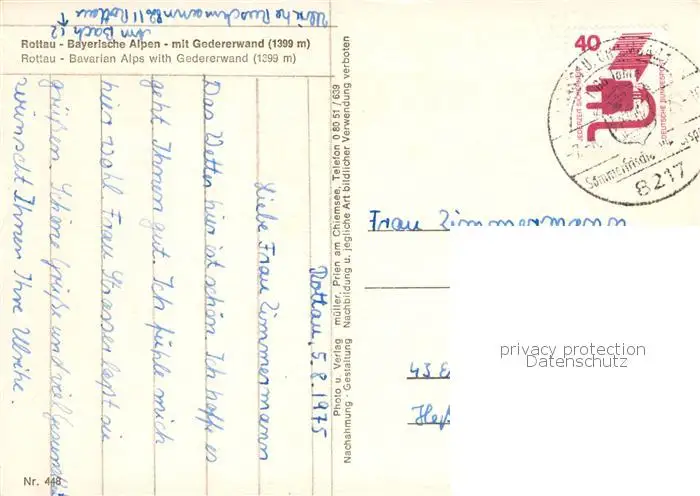 Ulrike 8211 Rottau
Am Bach 12
Rottau - Bayerische Alpen - mit Gedererwand (1399 m)
Rottau - Bavarian Alps with Gedererwand (1399 m)
Rottau, 5.8.1975
Liebe Frau Zimmermann
Das Wetter hier ist schön. Ich hoffe es
geht Ihnen gut. Ich fühle mich
hier wohl. Frau Strasser lässt sie
grüßen. Schöne Grüße und viel
wünscht Ihnen Ihre Ulrike.
Nr. 448
Photo u. Verlag müller, Prien am Chiemsee, Telefon 0 80 51 / 639
Nachahmung - Gestaltung Nachbildung u. jegliche Art bildlicher Verwendung verboten
40
JEDERZEIT SICHERHEIT
DEUTSCHE BUNDESPOST
Sommerfrische
8217
Frau Zimmermann
43 E
privacy protection
Datenschutz